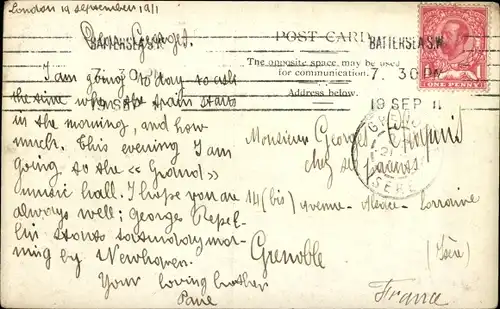 London 19 september 1911
Dear Georges.
I am going to day to ask
the time when the train starts
in the morning, and how
much. This evening I am
going to the « Grand »
music hall. I hope you are
always well; Georges Repel-
lin starts saturday mor-
ning by Newhaven.
Your loving brother
POST CARD
The opposite space, may be used
for communication.
Address below.
BATTERSEA S.W.
7. 30 PM
19 SEP 11
BATTERSEA S.W.
7. 30 PM
19 SEP 11
ONE PENNY
GRENOBLE
ISERE
Monsieur Georges
chez ses parents
14 (bis) avenue Alsace-Lorraine
Grenoble
(Isère)
France